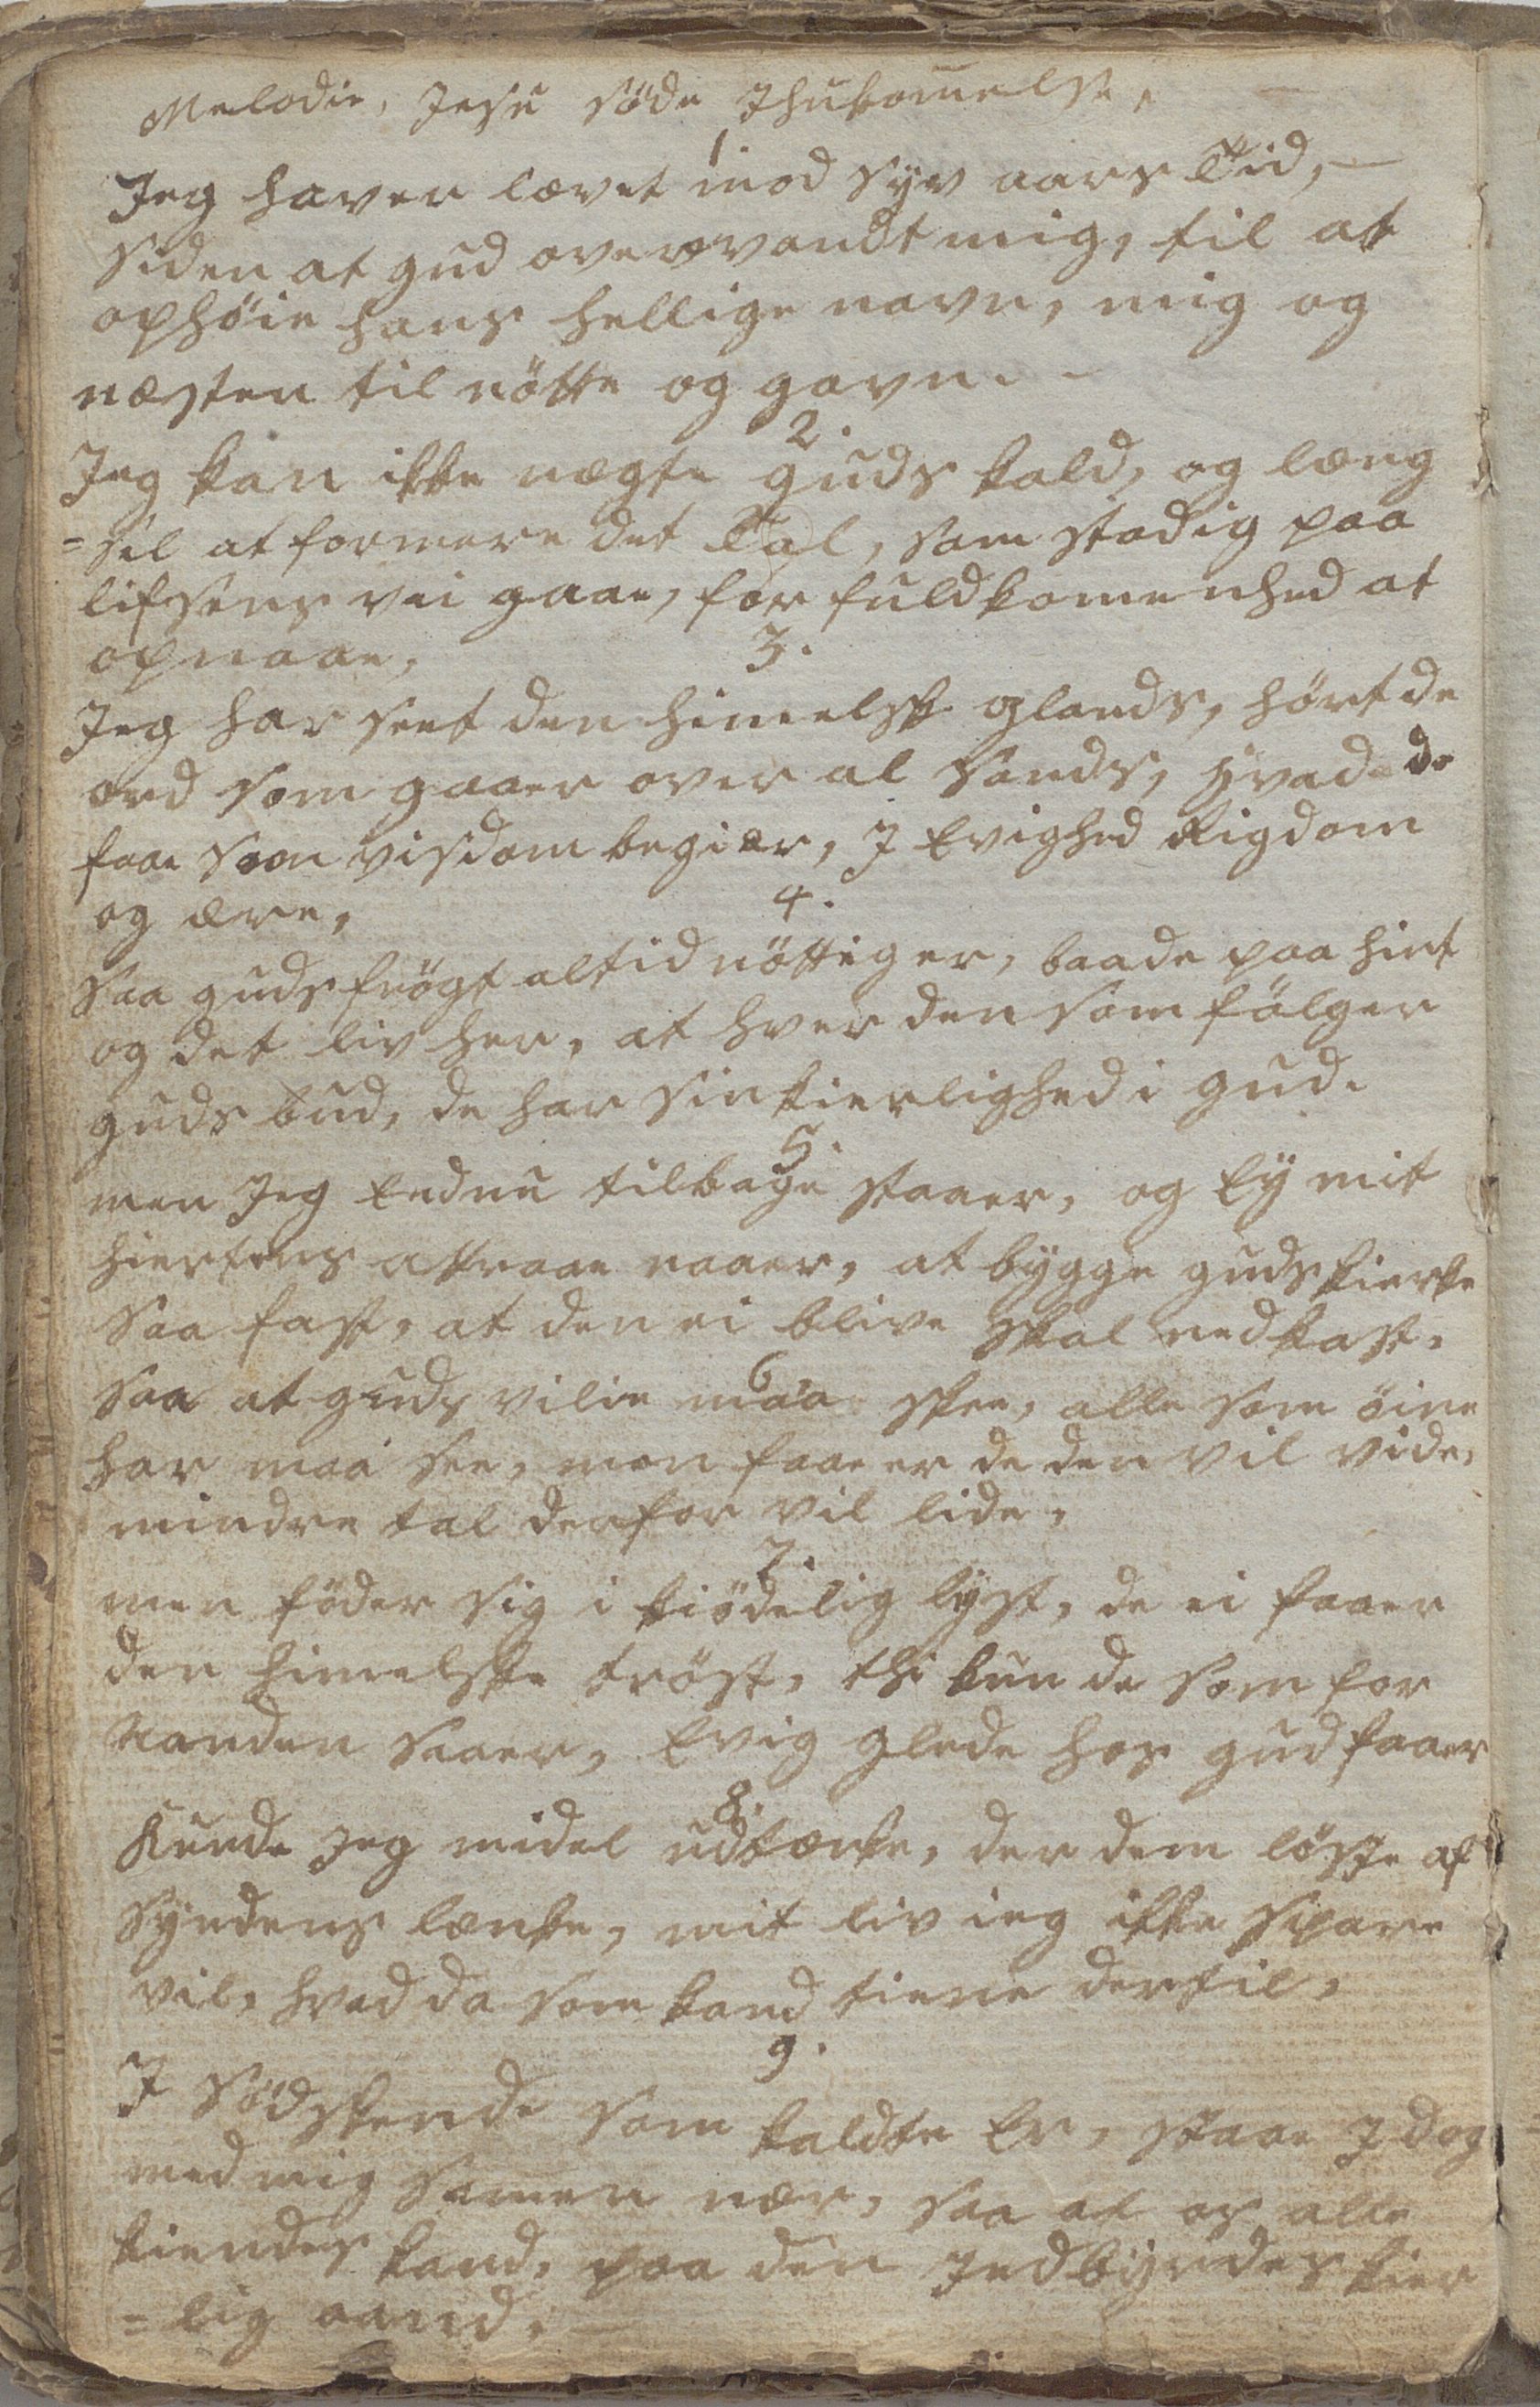 Melodie, Jesu söde Ihukommelse,
1.
Jeg haver lævet imod syv aars Tid,
siden at gud overvandt mig, til at
ophöie hans hellige navn, mig og
næsten til nötte og gavn.
2.
Jeg kan ikke nægte guds kald, og læng
=sel at formere det Tal, som stadig paa
lifsens vei gaae, for fuldkomenhed at
opnaae,
3.
Jeg har seet den himelske glands, hört de
ord som gaaer over al sands, hvad de
faae som visdom begiær, I Evighed Rigdom
og ære,
4.
saa guds frögt altid nöttig er, baade paa hint
og det liv her, at hver den som fölger
guds bud, de har sin kierlighed i gud.
5.
men Jeg Endnu tilbage staaer, og Ey mit
hiertens attraae naaer, at bygge guds kierke
saa fast, at den ei blive skal nedkast.
6
saa at guds vilie maa skee, alle som öine
har maa see, men faae er de den vil vide,
mindre tal derfor vil lide,
7.
men föder sig i kiödelig lyst, de ei faaer
den himelske tröst, thi kun de som for
Aanden saaer, Evig glede hos gud faaer
8.
Kunde Jeg midel udtænke, der dem löste af
syndens lænke, mit liv ieg ikke spare
vil, hvad da som kand tiene dertil,
9.
I södskende som kaldte Er, staae I dog
med mig samen nær, saa at os alle
kiendes kand, paa den Indbyrdes kier
=lig aand.